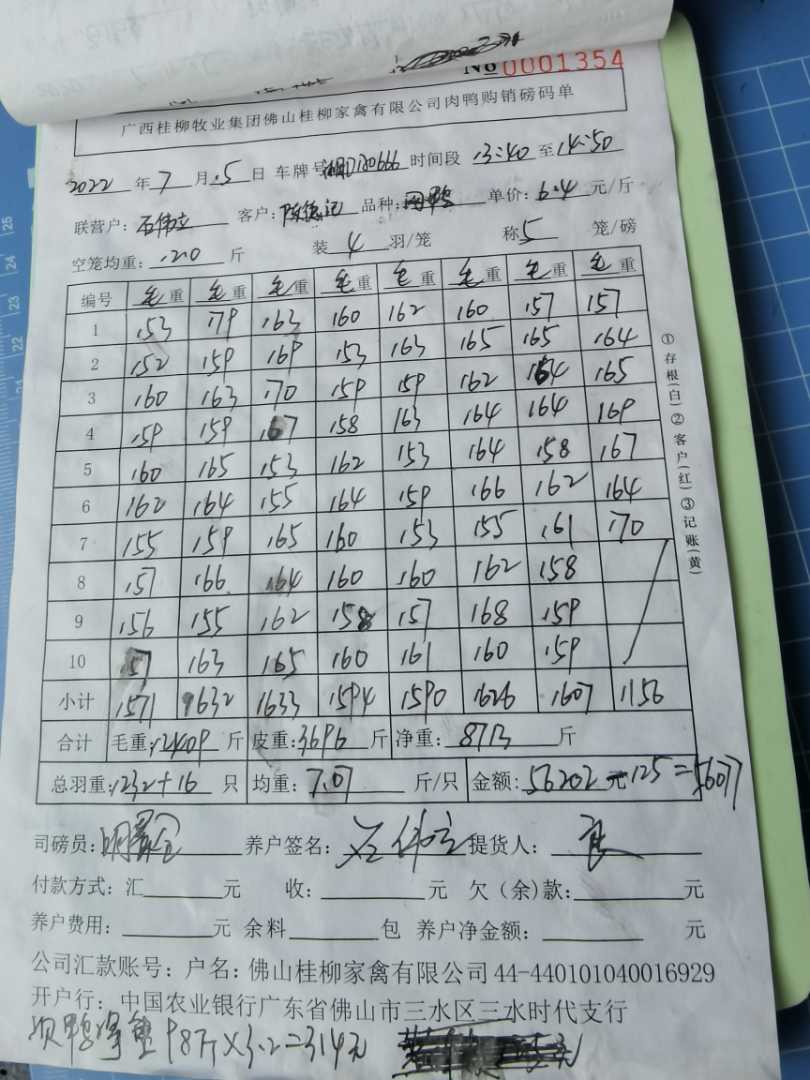 No 0001354
广西桂柳牧业集团佛山桂柳家禽有限公司肉鸭购销磅码单
2022 年 7 月 5 日 车牌号 时间段 13:40 至 14:50
联营户: 石伟立 客户: 陈德记 品种: 肉鸭 单价: 6.4 元/斤
空笼均重: 12.0 斤 装 4 羽/笼 称 5 笼/磅
编号 毛重 毛重 毛重 毛重 毛重 毛重 毛重 毛重
1 153 179 163 160 162 160 157 157
2 152 159 169 153 163 165 165 164
3 160 163 170 159 159 162 164 165
4 159 159 167 158 163 164 164 169
5 160 165 153 162 153 164 158 167
6 162 164 155 164 159 166 162 164
7 155 159 165 160 153 155 161 170
8 157 166 164 160 160 162 158
9 156 155 162 158 157 168 159
10 157 163 165 160 161 160 159
小计 1571 1632 1633 1594 1590 1626 1607 1156
合计 毛重: 12409 斤 皮重: 3696 斤 净重: 8713 斤
总羽重: 1232+16 只 均重: 7.07 斤/只 金额: 56202元-125=56077
司磅员: 养户签名: 石伟立 提货人:
付款方式: 汇 元 收: 元 欠(余)款: 元
养户费用: 元 余料 包 养户净金额: 元
公司汇款账号: 户名: 佛山桂柳家禽有限公司 44-440101040016929
开户行: 中国农业银行广东省佛山市三水区三水时代支行
鸭 98斤×3.2=314元
①存根(白)②客户(红)③记账(黄)